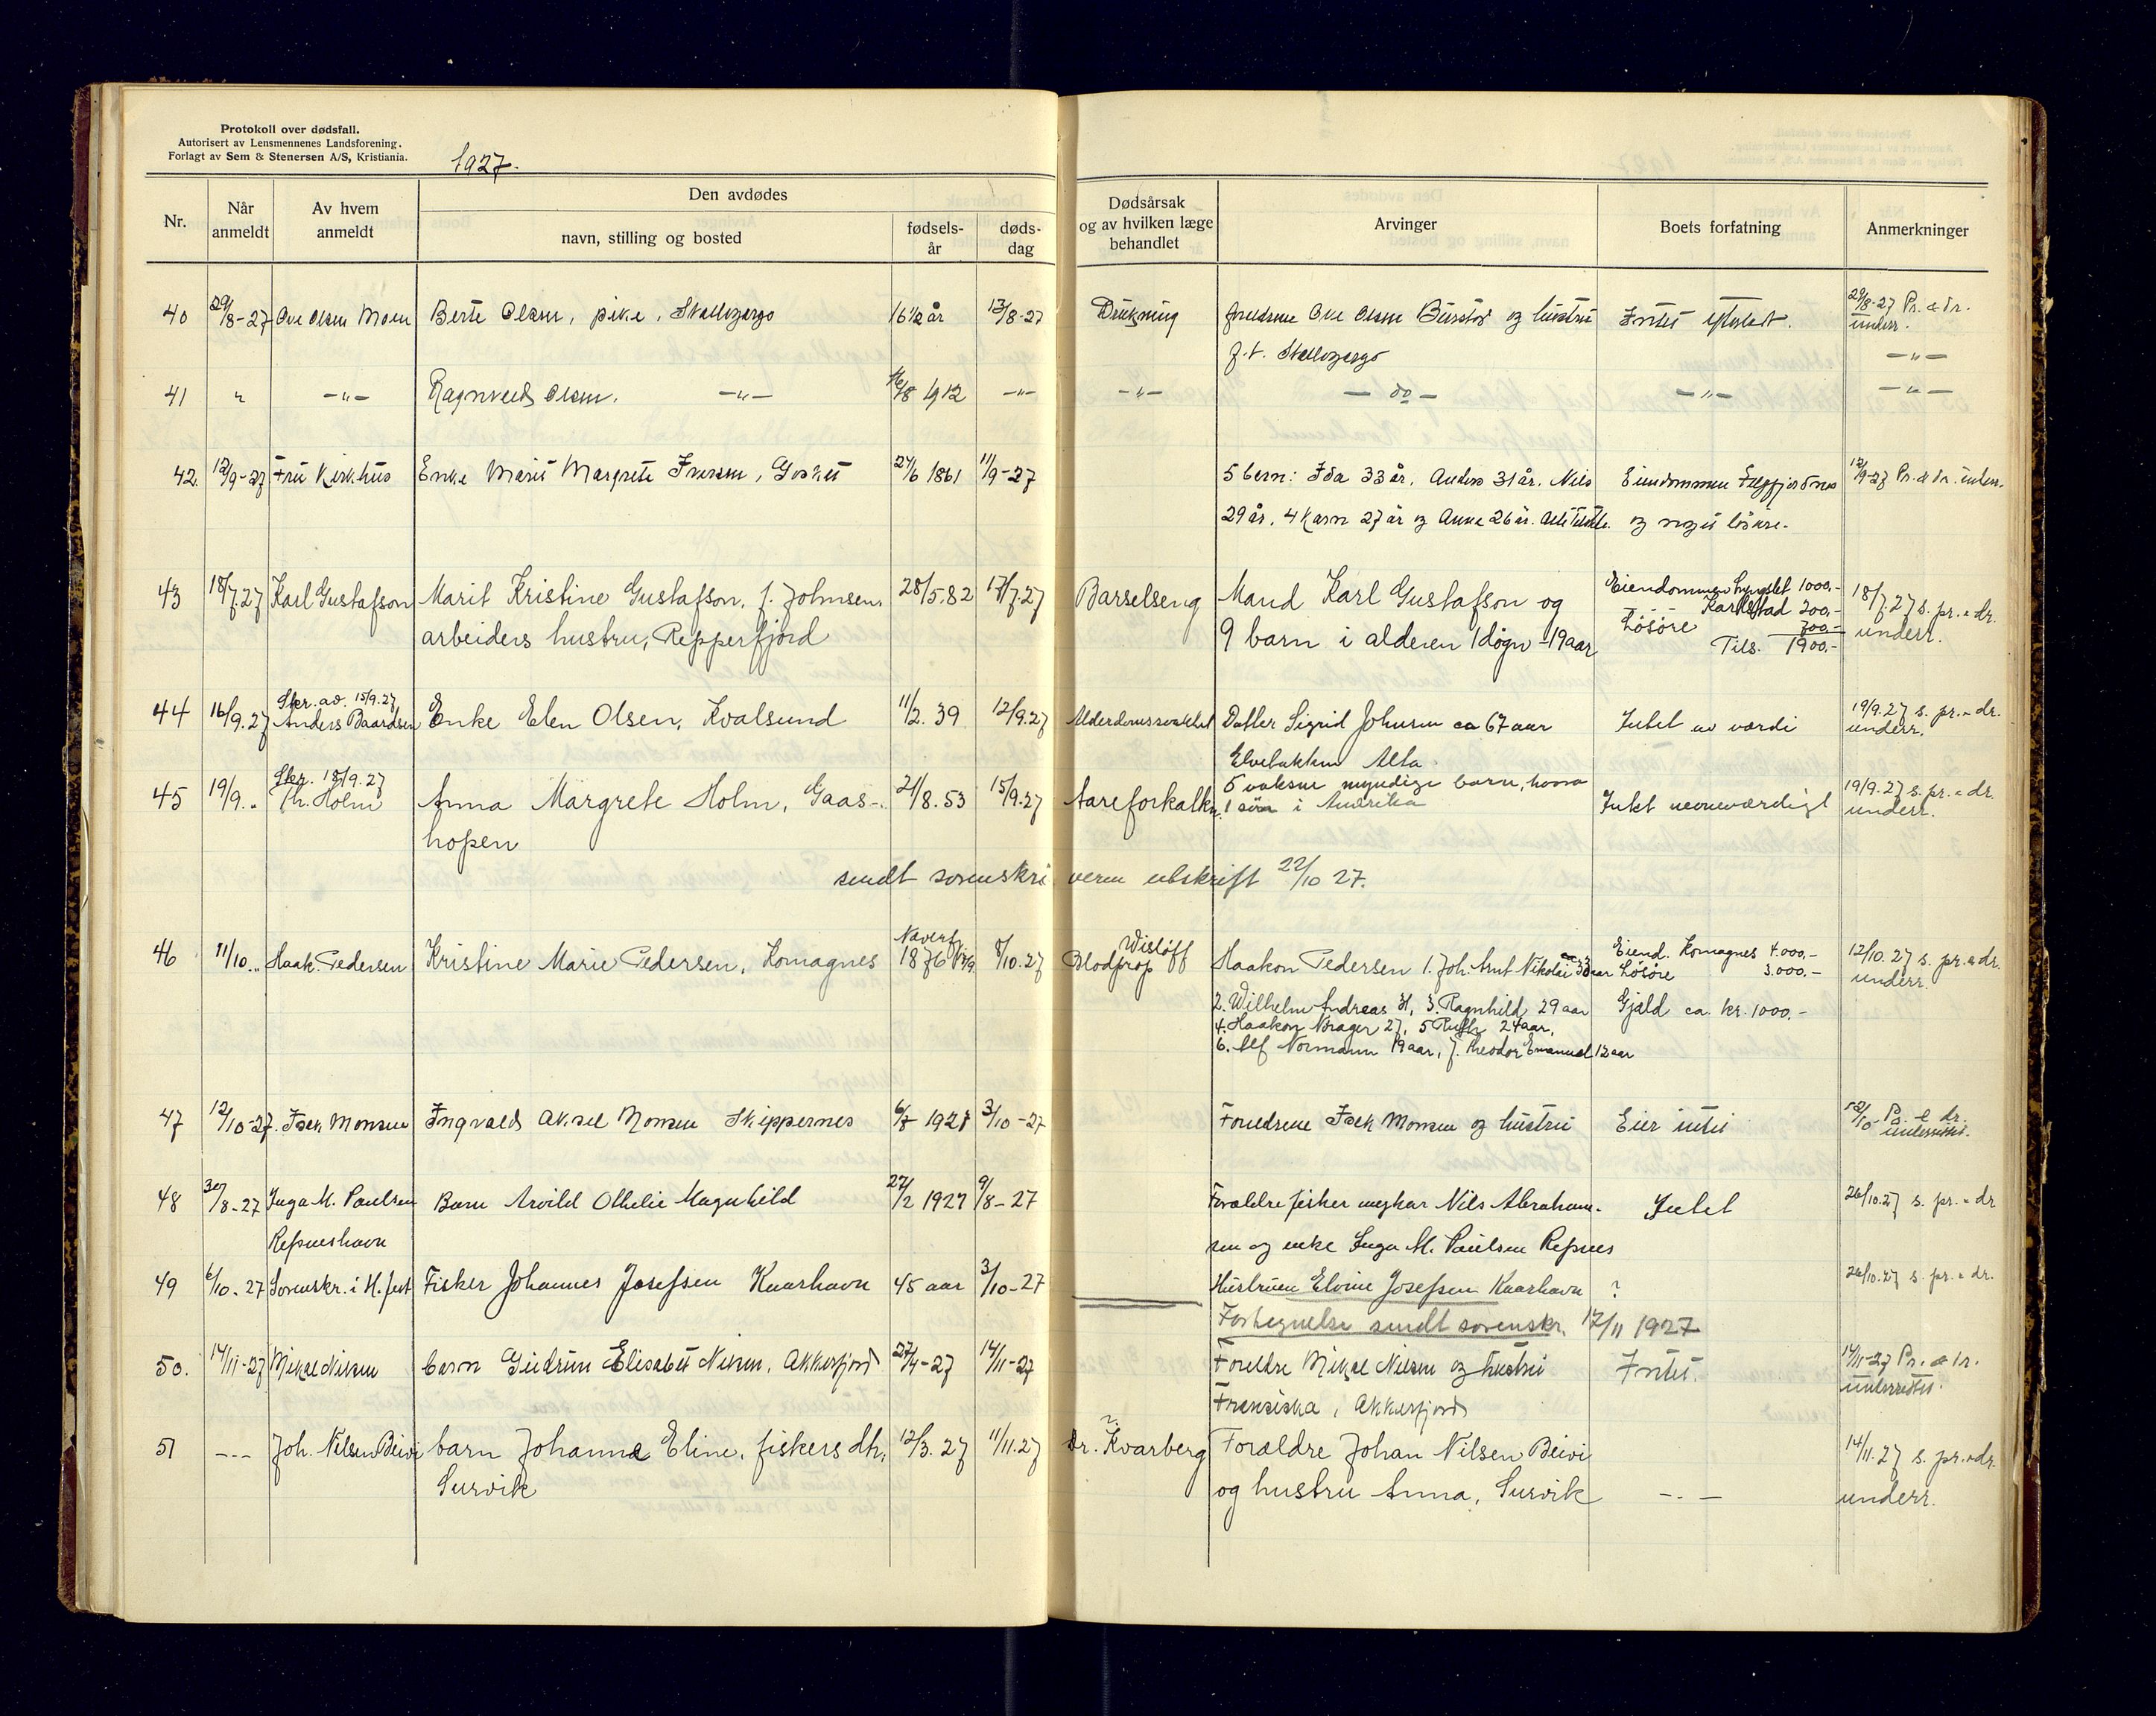 Protokoll over dødsfall.
Autorisert av Lensmennenes Landsforening.
Forlagt av Sem & Stenersen A/S, Kristiania.
1927.
Nr.
Når anmeldt
Av hvem anmeldt
Den avdødes
navn, stilling og bosted
fødsels-år
døds-dag
Dødsårsak og av hvilken læge behandlet
Arvinger
Boets forfatning
Anmerkninger
40 29/8-27 Ove Olsen Moen Berte Olsen, pike, 16 1/2 år 13/8-27 Drukning foreldrene Ove Olsen og hustru Intet efterladt. 29/8-27 Pr. & dr.
underr.
p.t.
-"-
41 " -"- Ragnvald Olsen. -"- 16/8 1912 -"- -"- - do - -"- -"-
42. 12/9-27 Fru Kirkhus Enke Marit Margrete Iversen, 24/6 1861 11/9-27 5 barn: Ida 33 år, Anders 31 år, Nils Eiendommen 12/9-27 Pr. & dr. underr.
29 år, 4 Karn 27 år og Anne 26 år. og noget løsøre.
43 18/7.27 Karl Gustafson Marit Kristine Gustafson, f. Johnsen, 28/5.82 17/7.27 Barselseng Mand Karl Gustafson og Eiendommen Lyngslet 1000.- 18/7.27 s. pr. & dr.
Karlstad 200.-
arbeiders hustru, Repperfjord 9 barn i alderen 1 døgn - 19 aar Løsøre 700.- underr.
Tils. 1900.-
44 16/9.27 Skr. av 15/9.27 Anders Baardsen Enke Elen Olsen, Kvalsund 11/2. 39 12/9.27 Alderdomssvakhet Datter Sigrid Johnsen ca 67 aar Intet av værdi 19/9.27 s. pr. & dr.
underr.
Elvebakken Alta
45 19/9. " Skr. 18/9.27 Holm Anna Margrete Holm, Gaas- 21/8.53 15/9.27 Aareforkalkn. 5 voksne myndige barn, hvorav Intet nevneværdigt 19/9.27 s. pr. & dr.
hopen 1 søn i Amerika underr.
sendt sorenskriveren utskrift 22/10 27.
46 11/10. " Haak. Pedersen Kristine Marie Pedersen, Komagnes 1876 8/10.27 Wisløff Haakon Pedersen 1. Joh. Arnt Nikolai 33 aar Eiend. Komagnes 4.000.- 12/10.27 s. pr. & dr.
Blodprop Løsøre 3.000.- underr.
2. Wilhelm Andreas 31, 3. Ragnhild 29 aar Gjæld ca. kr. 1000.-
4. Haakon Brager 27, 5 Ruth 24 aar,
6. Alf Normann 19 aar, 7. Theodor Emanuel 12 aar
47 12/10-27. Isak Monsen Ingvald Aksel Monsen Skippernes 6/8 1927 3/10-27 Foreldrene Isak Monsen og hustru Eier intet 12/10 Pr. & dr.
underrettet.
48 30/8-27 Inga M. Paulsen Barn Arvild Othelie Magnhild 27/2 1927 9/8-27 Forældre fisker ungkar Nils Abraham- Intet 26/10.27 s. pr. & dr
Refsneshavn sen og enke Inga M. Paulsen Refsnes
49 6/10-27 Sorenskr. i H.fest Fisker Johannes Josefsen Knarhavn 45 aar 3/10-27 Hustruen Elvine Josefsen Knarhavn ? 26/10.27 s. pr. & dr.
Fortegnelse sendt sorenskr. 17/11 1927
50. 14/11-27 Mikal Nilsen barn Gudrun Elisabet Nilsen, Akkarfjord 27/4-27 14/11-27 Foreldre Mikal Nilsen og hustru Intet. 14/11-27 Pr. & dr.
underrettet.
Fransiska, Akkarfjord
51 --- Joh. Nilsen Beivi barn Johanna Eline, fiskers dtr. 12/3. 27 11/11.27 dr. Kvarberg ? Forældre Johan Nilsen Beivi 14/11.27 s. pr. & dr.
Survik og hustru Anna, Survik -"- underr.